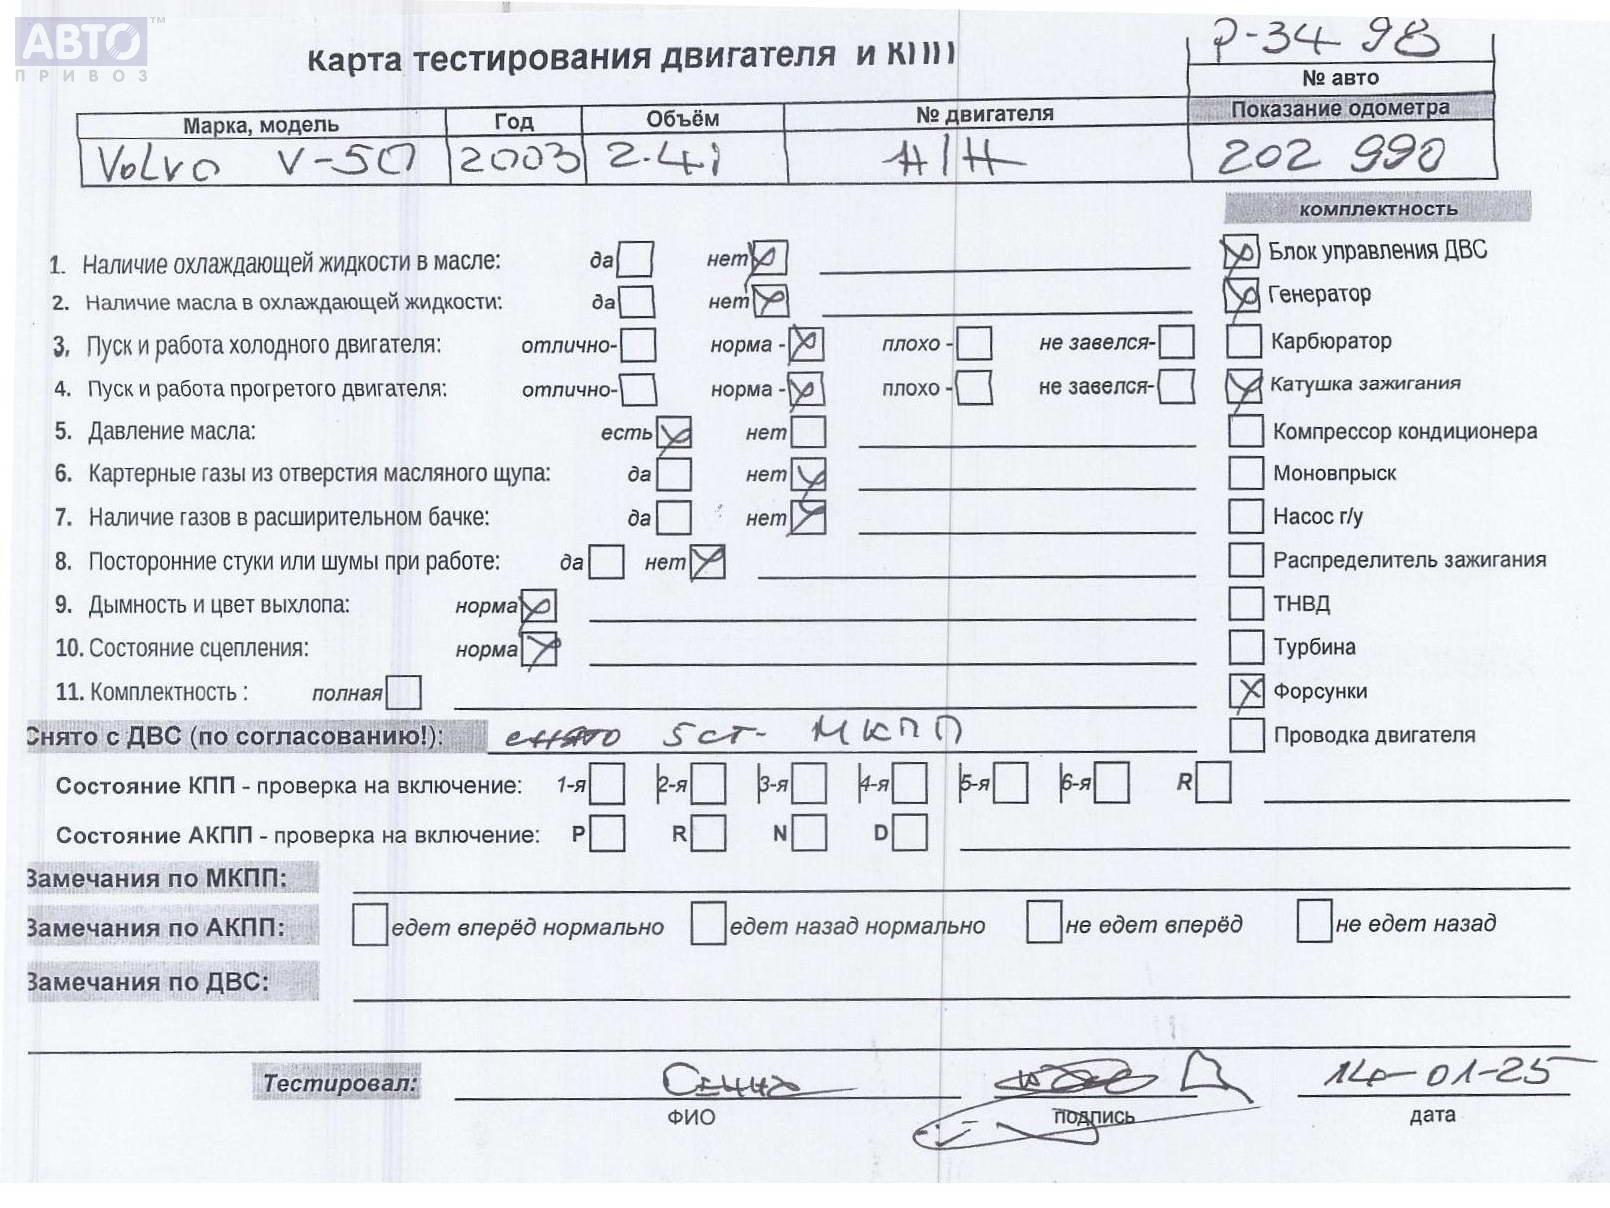 АВТО™
ПРИВОЗ
Карта тестирования двигателя и КПП
P-34 98
№ авто
Марка, модель Год Объём № двигателя Показание одометра
Volvo V-50 2003 2.4i Н/Н 202 990
комплектность
1. Наличие охлаждающей жидкости в масле: да нет
Блок управления ДВС
2. Наличие масла в охлаждающей жидкости: да нет
Генератор
3. Пуск и работа холодного двигателя: отлично- норма - плохо - не завелся-
Карбюратор
4. Пуск и работа прогретого двигателя: отлично- норма - плохо - не завелся-
Катушка зажигания
5. Давление масла: есть нет
Компрессор кондиционера
6. Картерные газы из отверстия масляного щупа: да нет
Моновпрыск
7. Наличие газов в расширительном бачке: да нет
Насос г/у
8. Посторонние стуки или шумы при работе: да нет
Распределитель зажигания
9. Дымность и цвет выхлопа: норма
ТНВД
10. Состояние сцепления: норма
Турбина
11. Комплектность : полная
Форсунки
Снято с ДВС (по согласованию!): снято 5ст- МКПП
Проводка двигателя
Состояние КПП - проверка на включение: 1-я 2-я 3-я 4-я 5-я 6-я R
Состояние АКПП - проверка на включение: P R N D
Замечания по МКПП:
Замечания по АКПП: едет вперёд нормально едет назад нормально не едет вперёд не едет назад
Замечания по ДВС:
Тестировал: 14-01-25
ФИО подпись дата